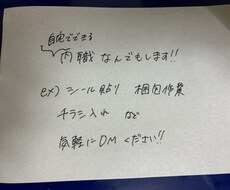 自宅でできる
内職なんでもします!!
ex) シール貼り 梱包作業
チラシ入れ など
気軽にDMください!!